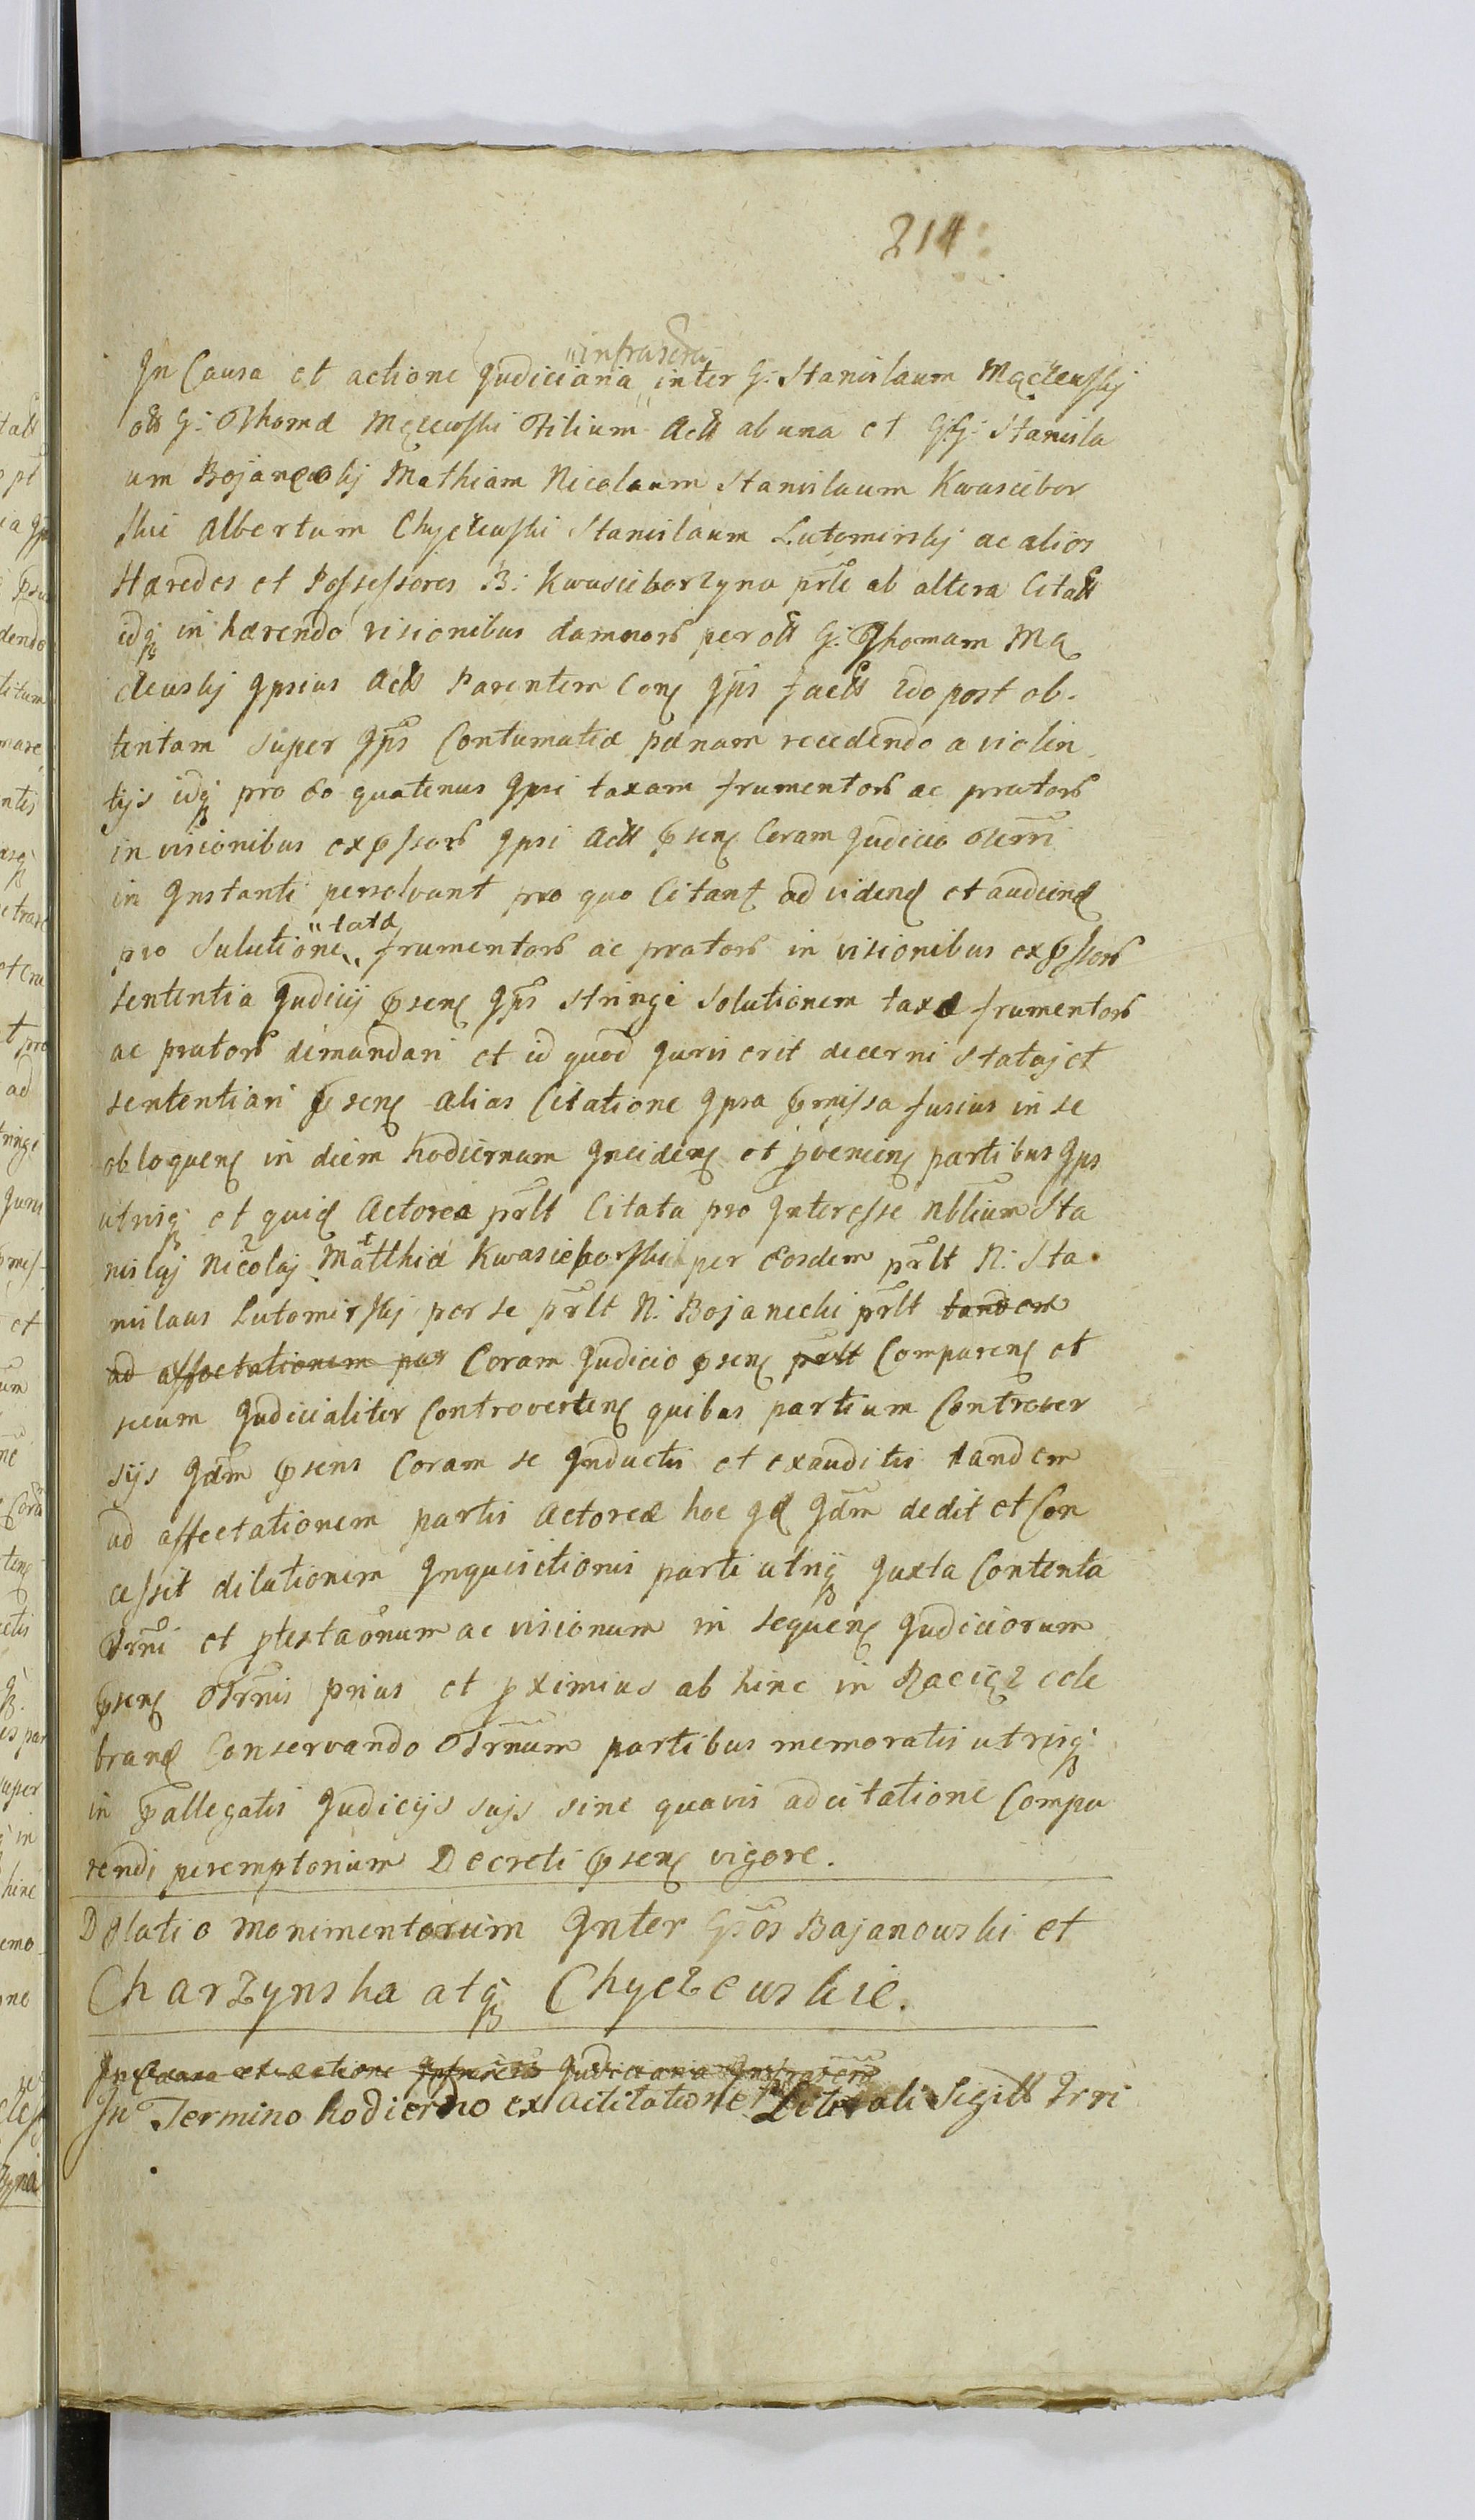 214
In Causa et actione Judiciaria infrascra inter G: Stanislaum Mączewskj
olt G: Thomæ Mączewski Filium Actt ab una et GG: Stanisla
um Bojanowskj Mathiam Nicolaum Stanislaum Kwascibor
skie Albertum Chyczewski Stanislaum Lutomirskj ac alios
Hæredes et Possessores B: Kwasciborzyno prte ab altera Citatt
idq in hærendo visionibus damnorb per olt G: Thomam Mą
czewskj Ipsius Actt Parentem Con Ips factt Ido post ob-
tentam super Ips Contumatiæ pænam recedendo a violen
tijs idq pro eo quatenus Ipsi taxam frumentorb ac pratorb
in visionibus expssorb Ipsi Actt psen Coram Judicio Terri
in Instanti persolvant pro quo Citant ad videnđ et audienđ
pro Solutione totd frumentorb ac pratorb in visionibus expssorb
sententia Judicij psen Ips stringi Solutionem taxæ frumentorb
ac pratorb demandari et id quod Juris erit decerni Statuj et
sententiari psen alias Citatione Ipsa pmissa fusius in se
obloquen in diem hodiernum Inciden et pvenien partibus Ips
utrisq et quid Actorea prlt Citata pro Interesse Nbtium Sta
nislaj Nicolaj Matthiæ Kwasieborski per Eosdem prlt N: Sta
nislaus Lutomirskj per se prlt N: Bojanecki prlt tandem
ad affectationem par Coram Judicio psen prlt Comparen et
secum Judicialiter Controverten quibus partium Controver
sijs Jdm psens Coram se Inductis et exauditis tandem
ad affectationem partis Actoreæ hoc qđ Jdm dedit et Con
cessit dilationem Inquisictionis parti utriq Juxta Contenta
Trmi et ptestaonum ac visionum in sequen Judiciorum
psen Trmis prius et pximius ab hinc in Raciąz cele
branđ Conservando Trmum partibus memoratis utrisq
in pallegatis Judicijs suis sine quavis adcitatione Compa
rendi peremptorium Decreti psen vigore.
Dilatio Monimentorum Inter Gros Bajanowski et
Charzynska atq Chyczewskie.
In Causa et actione Infrascra Judiciaria Infrascra
In Termino hodierno ex actitatione Literali Sigitt Trri